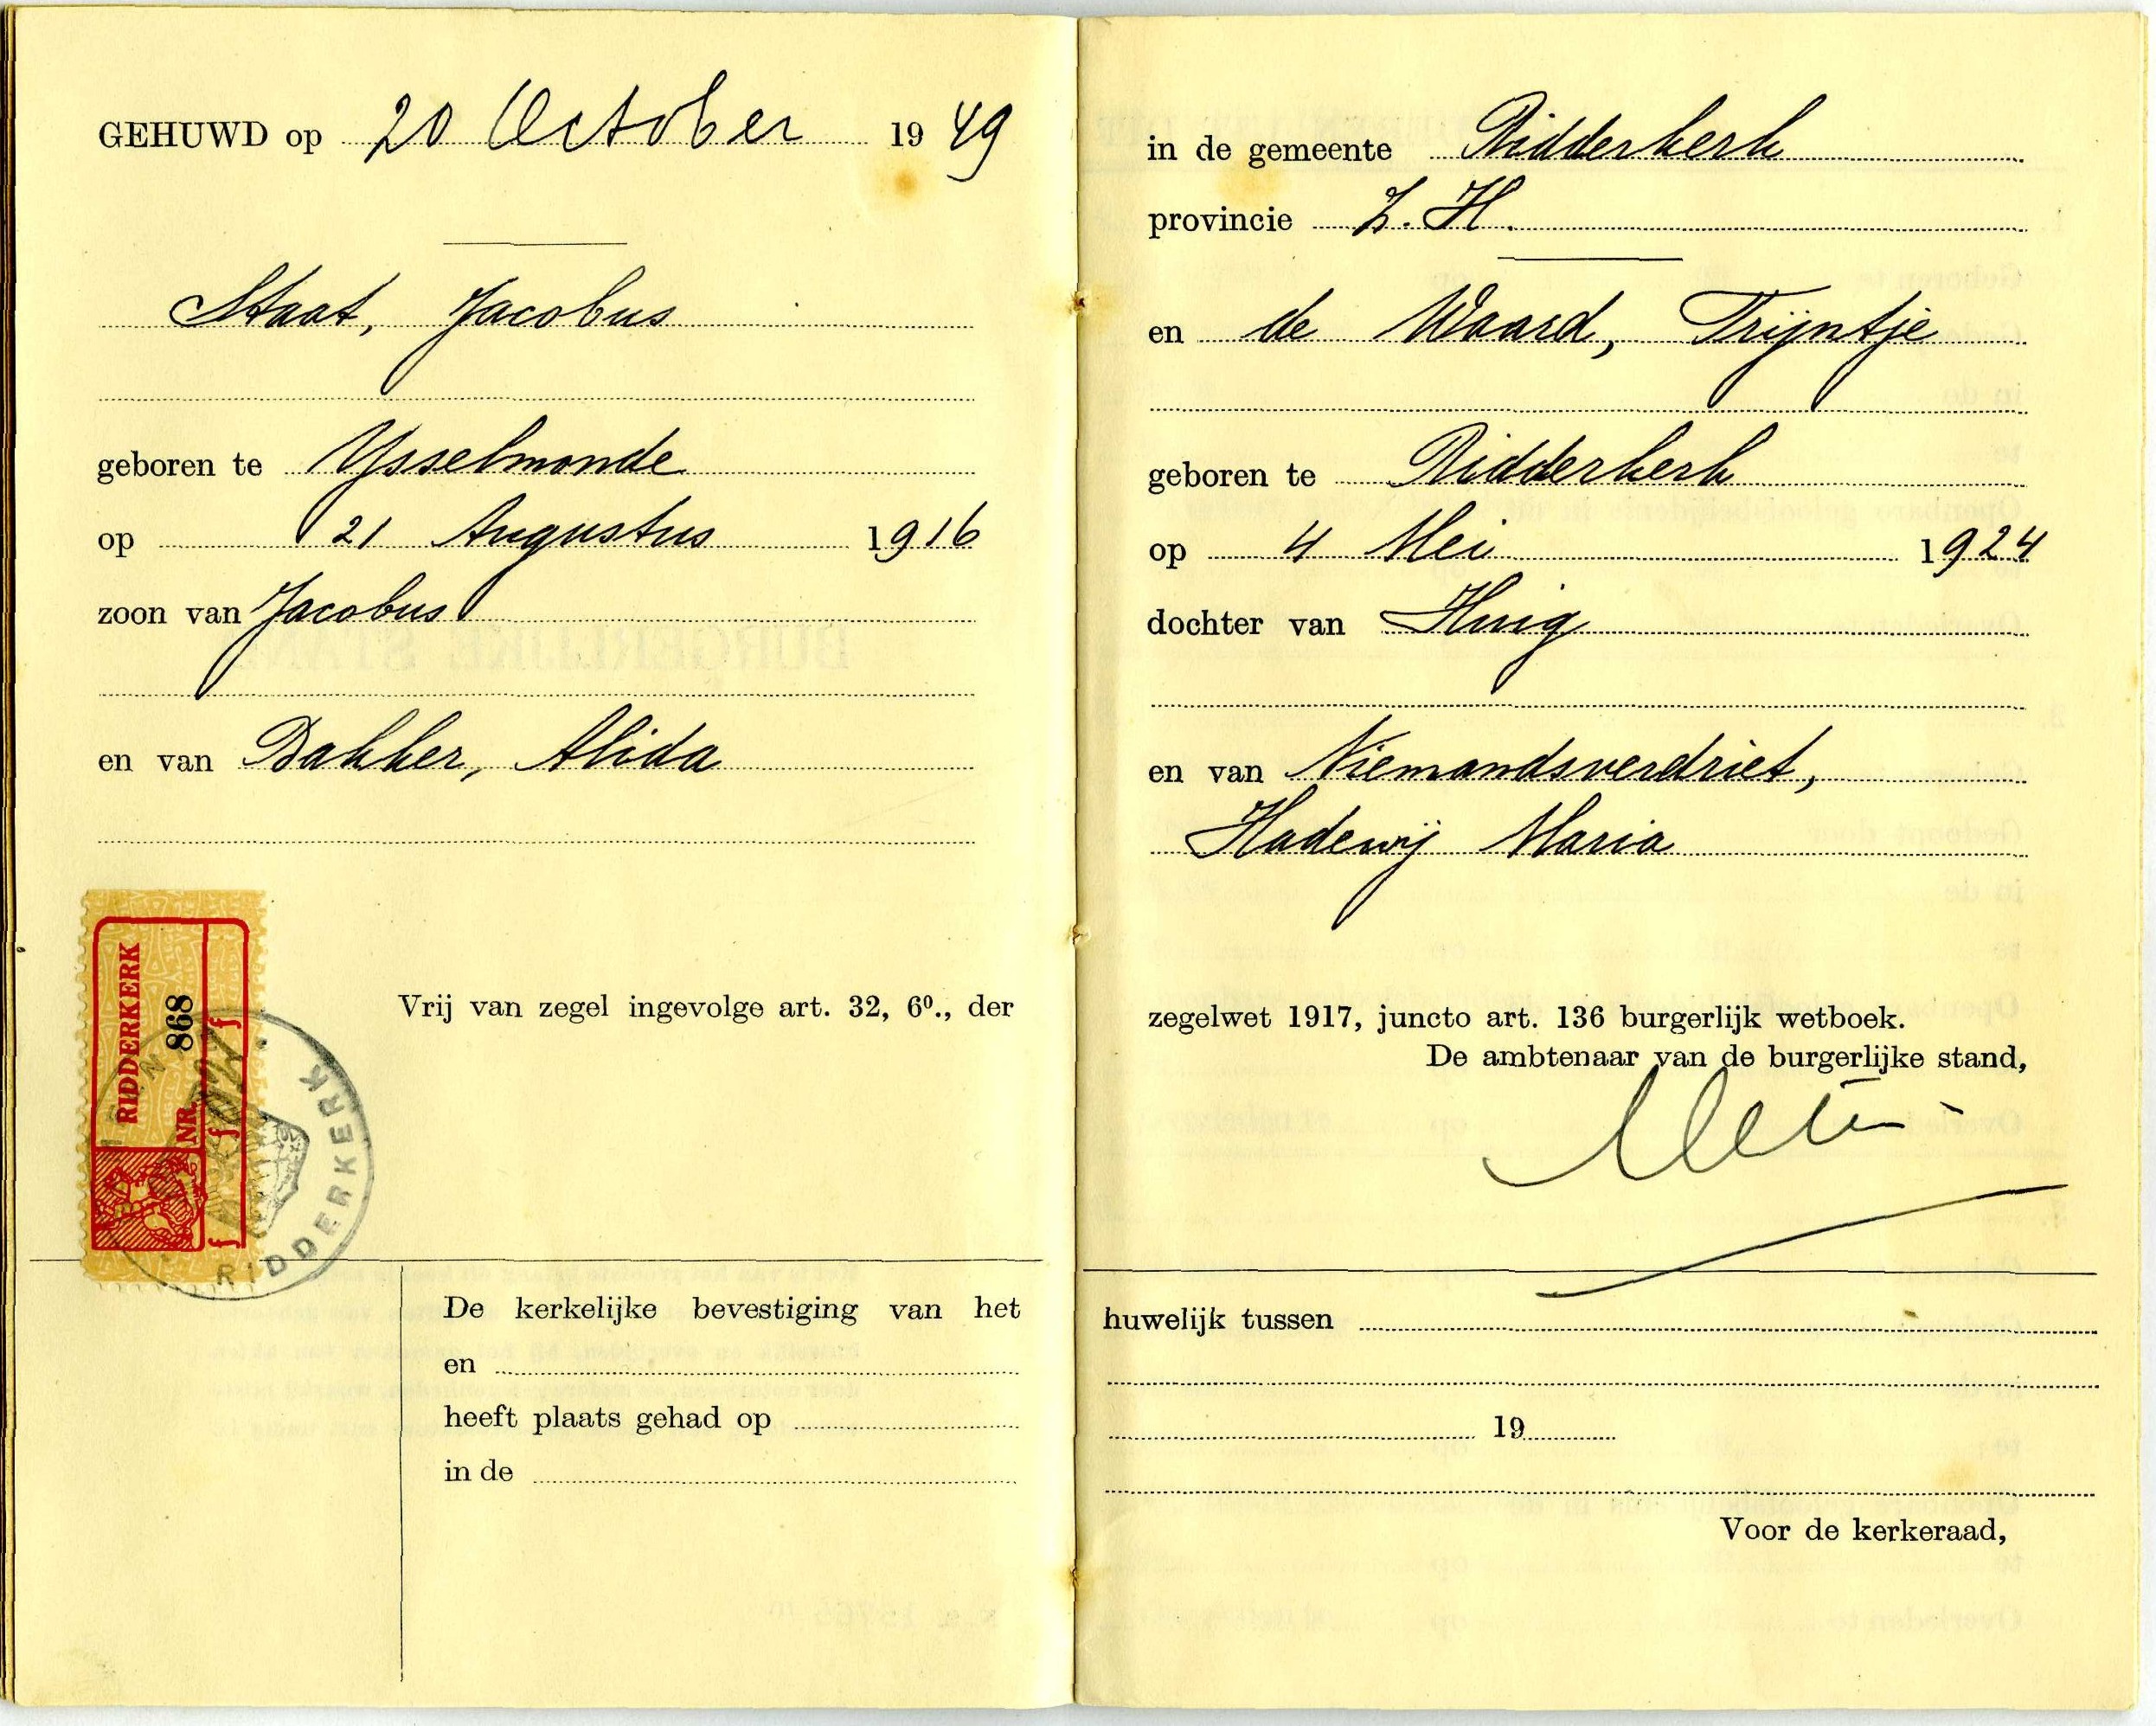 GEHUWD op 20 October 1949
Staat, Jacobus
geboren te Ysselmonde
op 21 Augustus 1916
zoon van Jacobus
en van Bakker, Alida
RIDDERKERK
NR. 868
RIDDERKERK
Vrij van zegel ingevolge art. 32, 6⁰., der
De kerkelijke bevestiging van het
en
heeft plaats gehad op
in de
in de gemeente Ridderkerk
provincie Z. H.
en de Waard, Trijntje
geboren te Ridderkerk
op 4 Mei 1924
dochter van Huig
en van Niemandsverdriet,
Hadewij Maria
zegelwet 1917, juncto art. 136 burgerlijk wetboek.
De ambtenaar van de burgerlijke stand,
huwelijk tussen
19
Voor de kerkeraad,